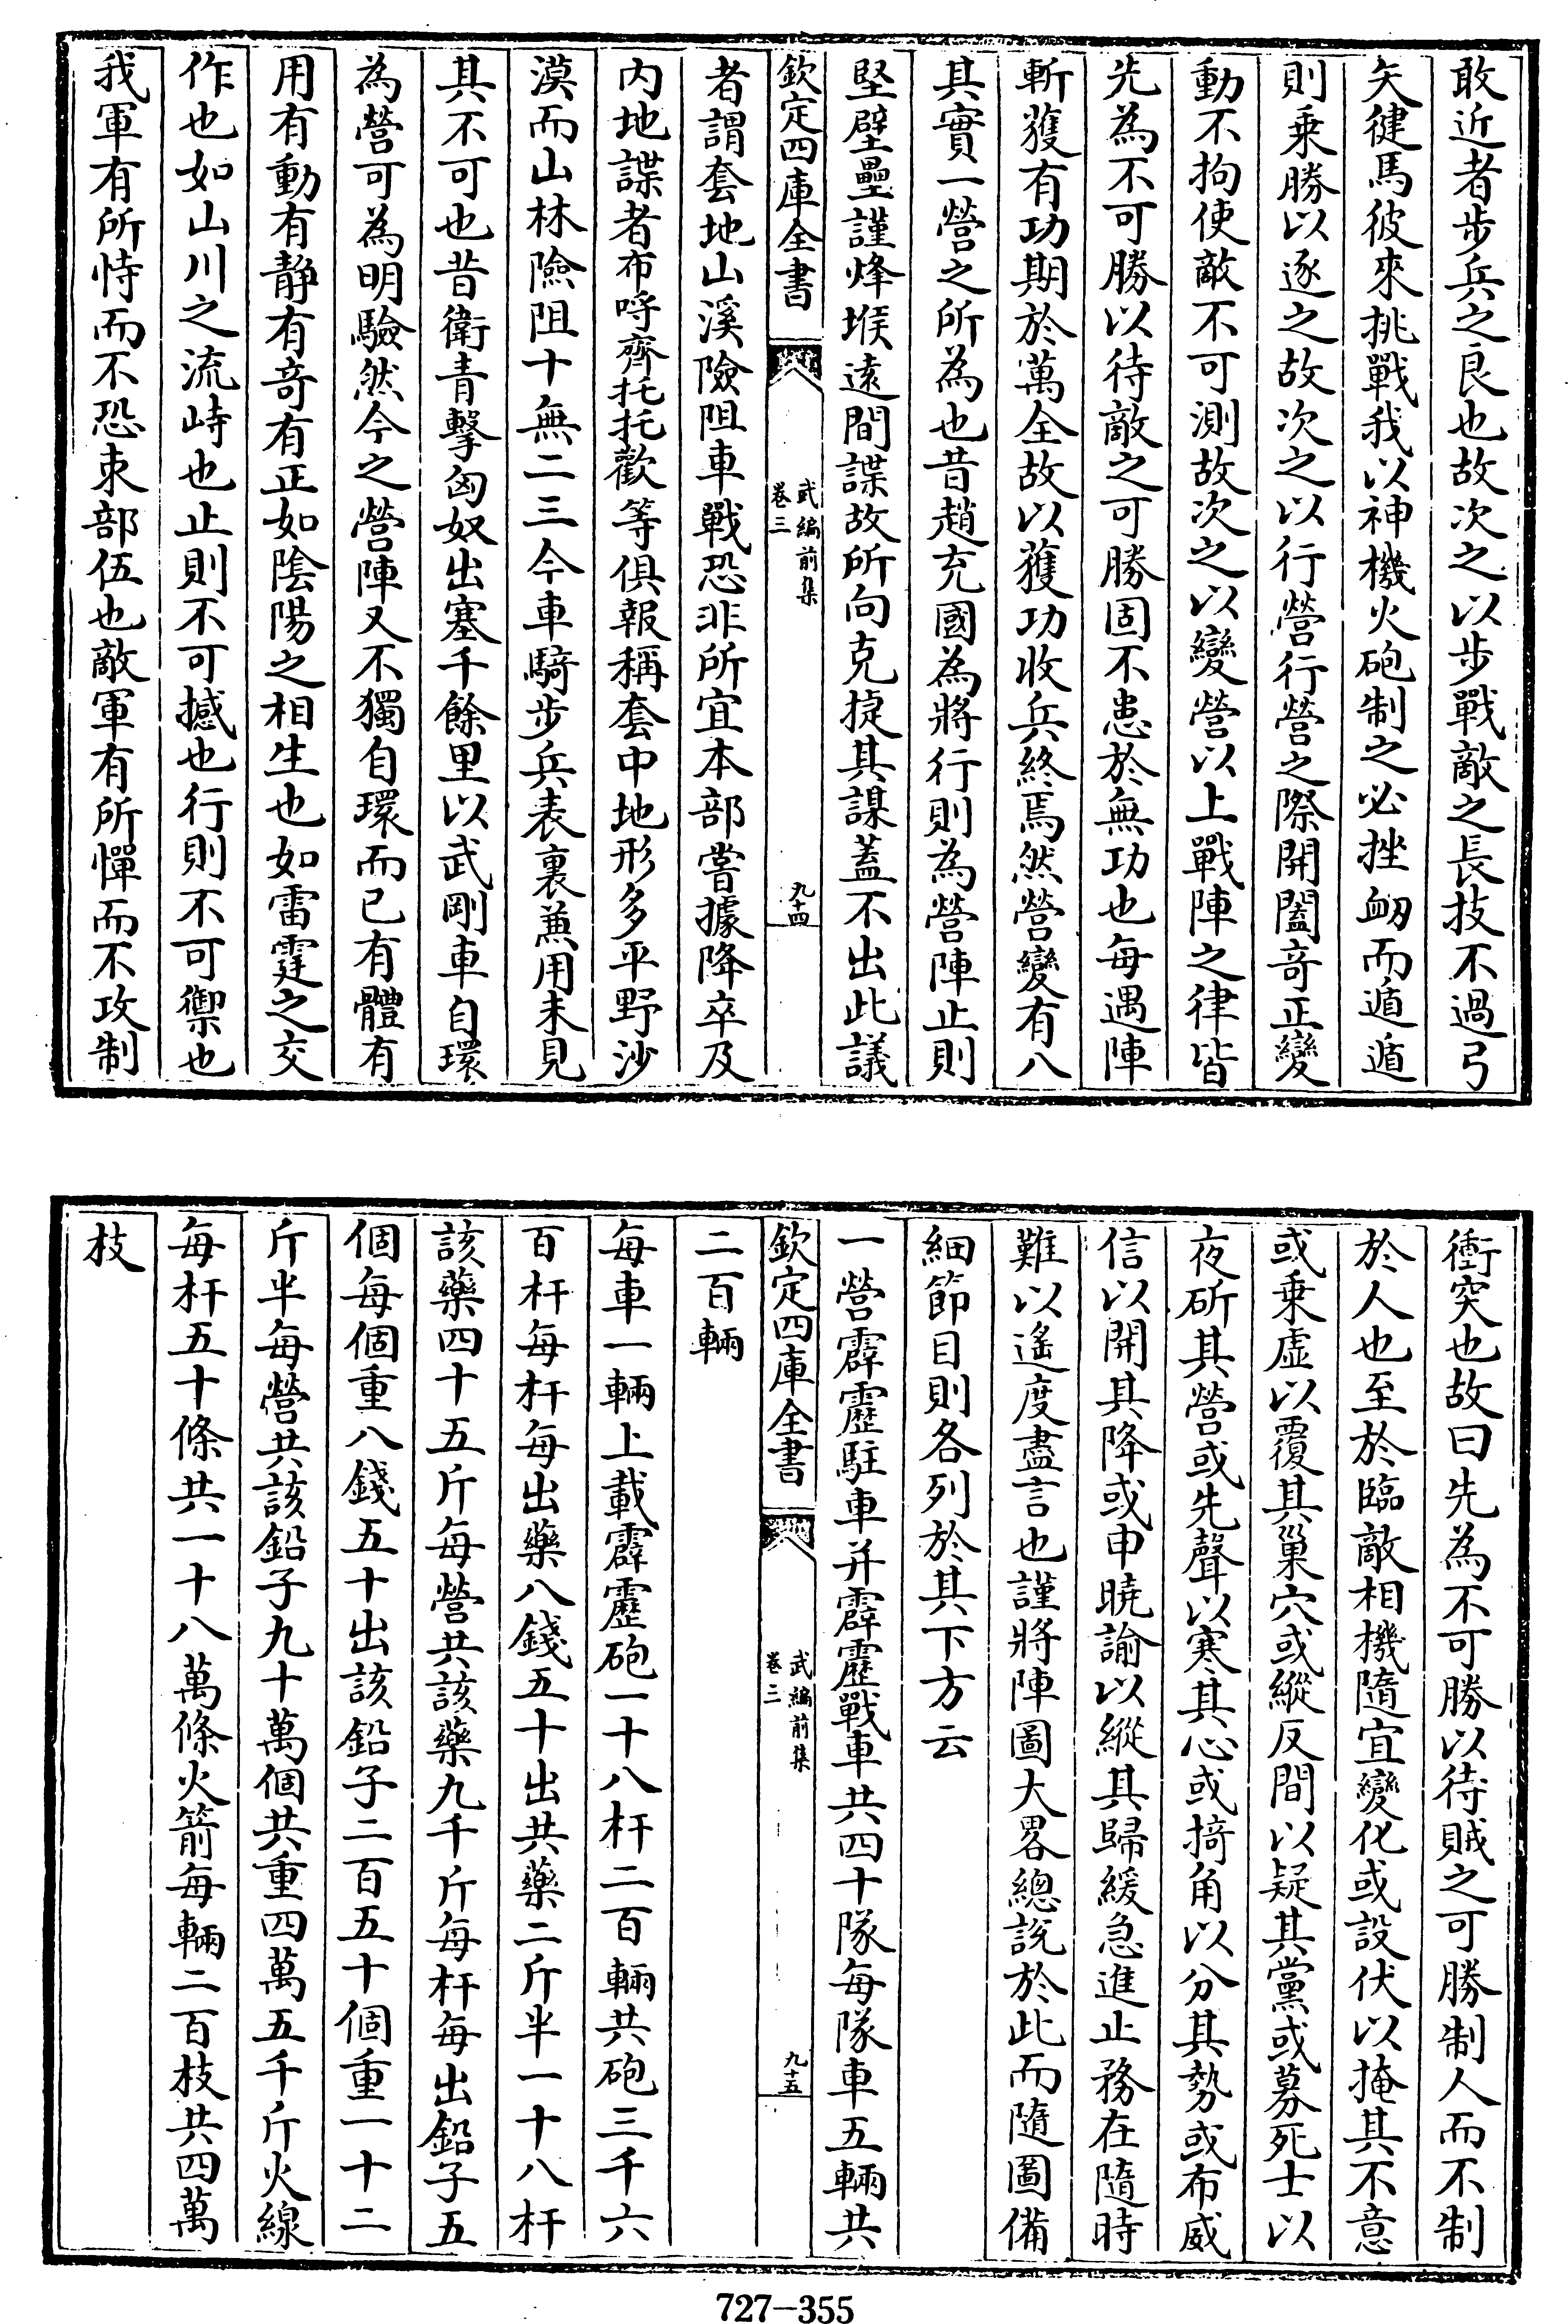 敢近者步兵之良也故次之以步戰敵之長技不過弓
矢健馬彼來挑戰我以神機火砲制之必挫衂而遁遁
則乗勝以逐之故次之以行營行營之際開闔竒正變
動不拘使敵不可測故次之以變營以上戰陣之律皆
先為不可勝以待敵之可勝固不患於無功也每遇陣
斬獲有功期於萬全故以獲功收兵終焉然營變有八
其實一營之所為也昔趙充國為將行則為營陣止則
堅壁壘謹烽堠遠間諜故所向克捷其謀蓋不出此議
欽定四庫全書
武編前集
卷三
九十四
者謂套地山溪險阻車戰恐非所宜本部嘗據降卒及
内地諜者布哱齊托托歡等俱報稱套中地形多平野沙
漠而山林險阻十無二三今車騎步兵表裏兼用未見
其不可也昔衛青擊匈奴出塞千餘里以武剛車自環
為營可為明驗然今之營陣又不獨自環而已有體有
用有動有静有竒有正如陰陽之相生也如雷霆之交
作也如山川之流峙也止則不可撼也行則不可禦也
我軍有所恃而不恐束部伍也敵軍有所憚而不攻制
衝突也故曰先為不可勝以待賊之可勝制人而不制
於人也至於臨敵相機隨宜變化或設伏以掩其不意
或乗虚以覆其巢穴或縱反間以疑其黨或募死士以
夜斫其營或先聲以寒其心或掎角以分其勢或布威
信以開其降或申曉諭以縱其歸緩急進止務在隨時
難以遙度盡言也謹將陣圖大畧總說於此而隨圖備
細節目則各列於其下方云
一營霹靂駐車并霹靂戰車共四十隊每隊車五輛共
欽定四庫全書
武編前集
卷三
九十五
二百輛
每車一輛上載霹靂砲一十八杆二百輛共砲三千六
百杆每杆每出藥八錢五十出共藥二斤半一十八杆
該藥四十五斤每營共該藥九千斤每杆每出鉛子五
個每個重八錢五十出該鉛子二百五十個重一十二
斤半每營共該鉛子九十萬個共重四萬五千斤火線
每杆五十條共一十八萬條火箭每輛二百枝共四萬
枝
727-355